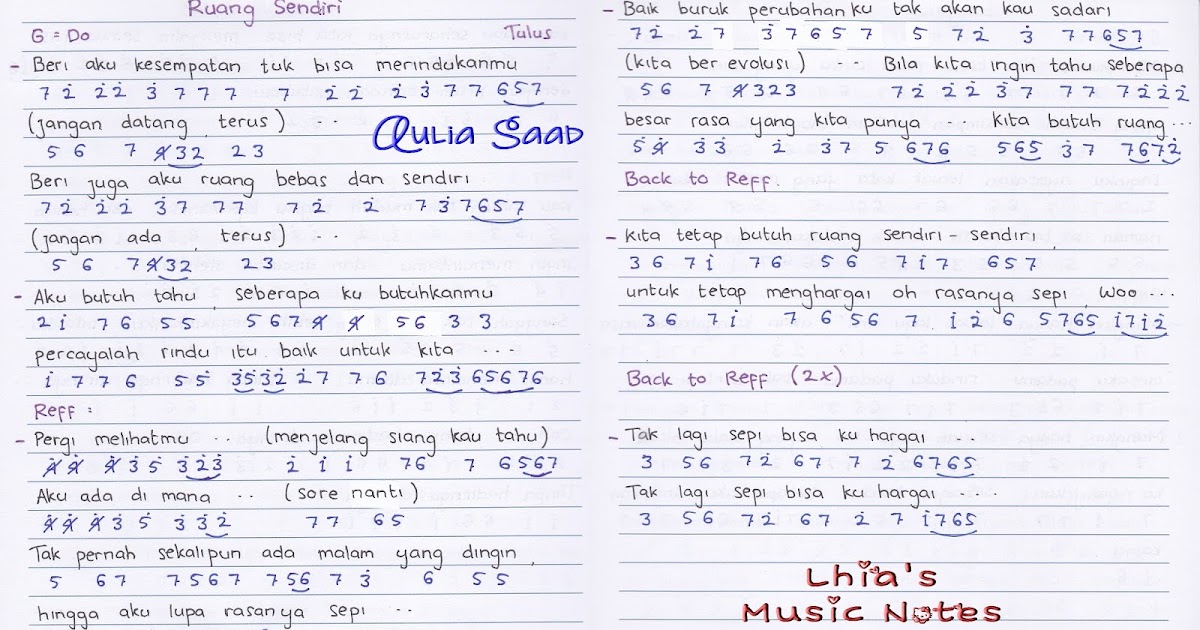 Ruang Sendiri
G = Do Tulus
- Beri aku kesempatan tuk bisa merindukanmu
7 2̇ 2̇2̇ 3̇ 7 7 7 7 2̇ 2̇ 2̇ 3̇ 7 7 657
(jangan datang terus)
5 6 7 4̸32 23
Aulia Saad
Beri juga aku ruang bebas dan sendiri
72̇ 2̇2̇ 3̇7 77 72̇ 2̇ 7 3̇7657
(jangan ada terus)
5 6 74̸32 23
- Aku butuh tahu seberapa ku butuhkanmu
2̇1̇ 76 55 56 4̸ 4̸ 56 33
percayalah rindu itu baik untuk kita ....
1̇ 7 7 6 55 3̇5̇3̇2̇ 2̇7 76 72̇3̇65676
Reff :
- Pergi melihatmu .. (menjelang siang kau tahu)
4̸̇ 4̸̇ 4̸̇3̇5̇ 3̇2̇3̇ 2̇ 1̇ 1̇ 76 7 6567
Aku ada di mana .. (sore nanti)
4̸̇4̸̇ 4̸̇3̇ 5̇ 3̇3̇2̇ 77 65
Tak pernah sekalipun ada malam yang dingin
5 67 7567 756 73̇ 6 55
hingga aku lupa rasanya sepi ..
- Baik buruk perubahanku tak akan kau sadari
72̇ 2̇7 3̇7657 5 72̇ 3̇ 77657
(kita berevolusi) .. Bila kita ingin tahu seberapa
56 7 4̸323 72̇ 2̇2̇ 3̇7 77 72̇2̇2̇
besar rasa yang kita punya .. kita butuh ruang...
54̸ 33 2̇ 37 5 676 565 37 7672̇
Back to Reff.
- Kita tetap butuh ruang sendiri - sendiri
3 6 71̇ 76 56 71̇7 657
untuk tetap menghargai oh rasanya sepi woo ....
36 71̇ 7 656 7 1̇2̇6 5765 1̇71̇2̇
Back to Reff (2x)
- Tak lagi sepi bisa ku hargai ....
3 56 72̇ 67 7 2̇6765
Tak lagi sepi bisa ku hargai ....
3 56 72̇ 67 2̇ 7 1̇765
Lhia's
Music Notes